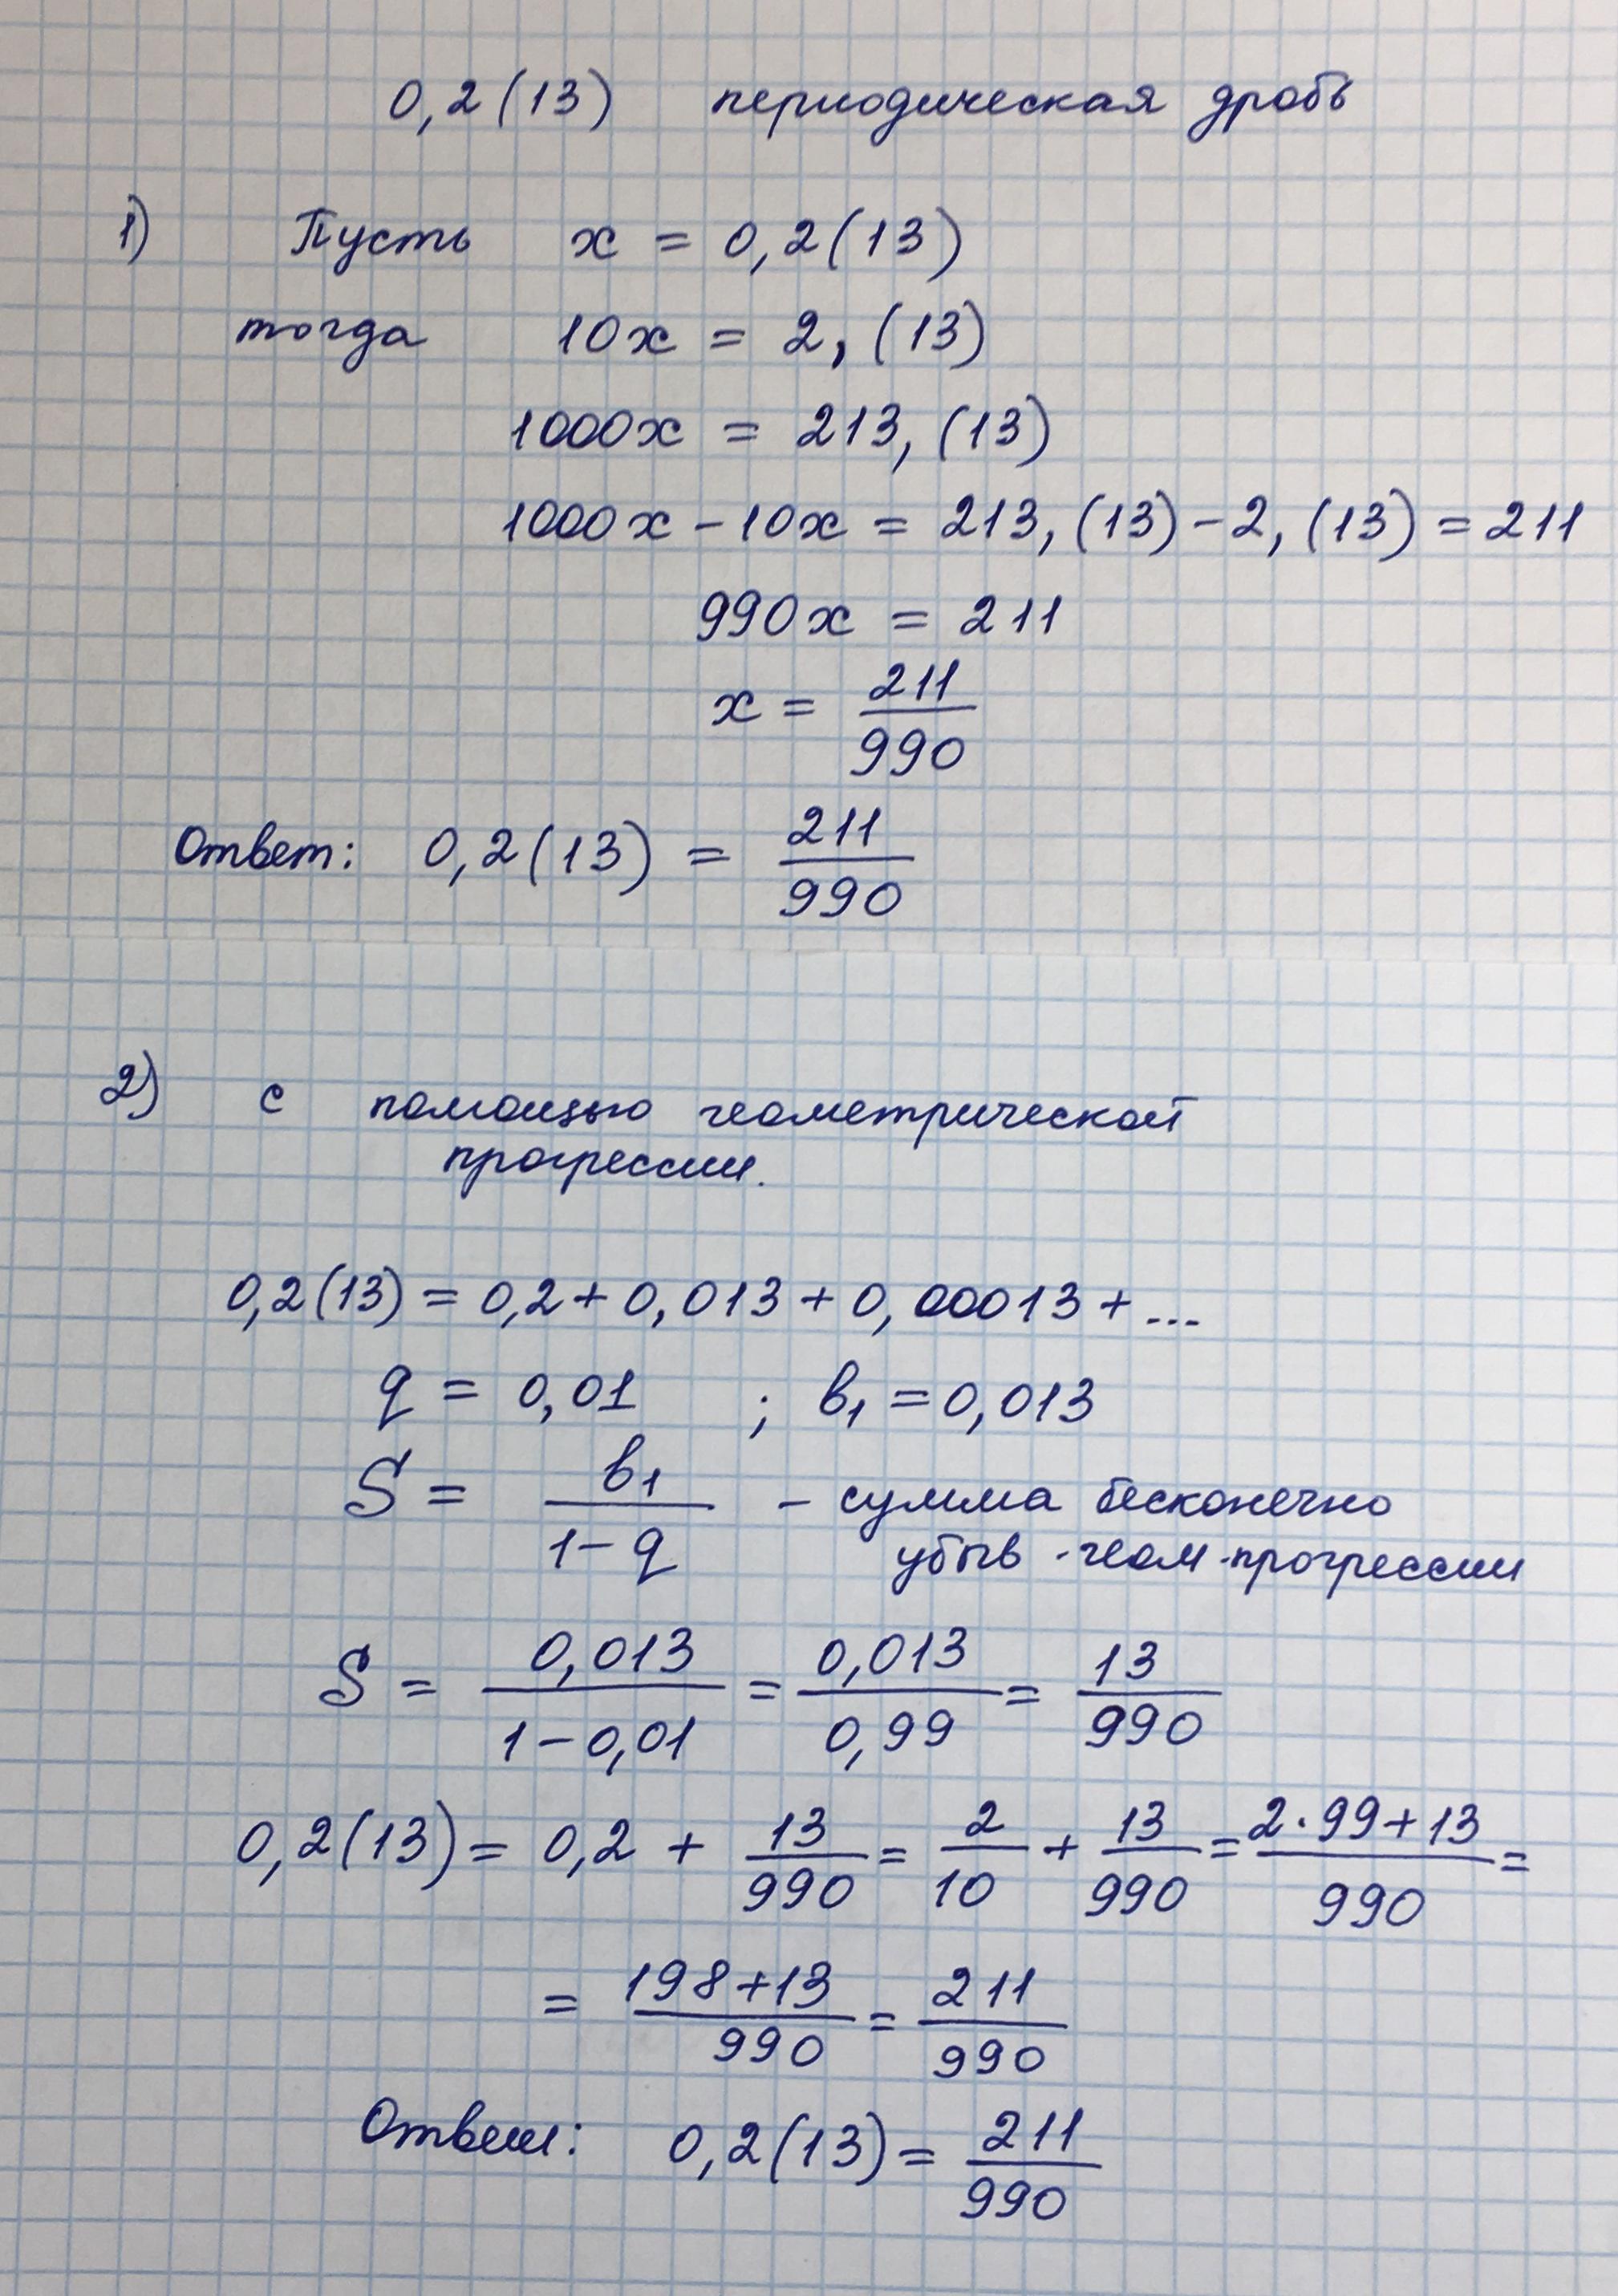 0,2(13) периодическая дробь
1) Пусть x = 0,2(13)
тогда 10x = 2,(13)
1000x = 213,(13)
1000x - 10x = 213,(13) - 2,(13) = 211
990x = 211
x = 211/990
Ответ: 0,2(13) = 211/990
2) с помощью геометрической
прогрессии.
0,2(13) = 0,2 + 0,013 + 0,00013 + ...
q = 0,01 ; b₁ = 0,013
S = b₁/(1-q) - сумма бесконечно
убыв. геом. прогрессии
S = 0,013/(1-0,01) = 0,013/0,99 = 13/990
0,2(13) = 0,2 + 13/990 = 2/10 + 13/990 = (2·99+13)/990 =
= (198+13)/990 = 211/990
Ответ: 0,2(13) = 211/990